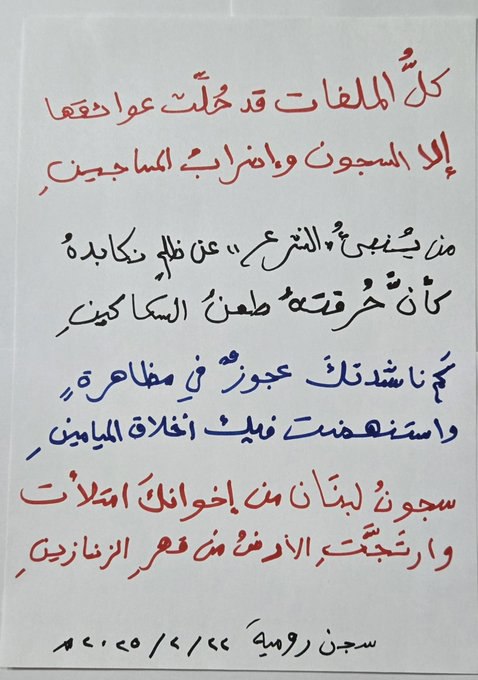 كلُّ الملفات قد حُلَّت عوائقها
إلا السجون وإضرابُ المساجينِ
من يُنبئُ "الشرع" عن ظلمٍ نكابدهُ
كأنَّ حُرقتهُ طعنُ السكاكينِ
كم ناشدتكَ عجوزٌ في مظاهرةٍ
واستنهضت فيك أخلاق الميامينِ
سجونُ لبنَان من إخوانكَ امتلأت
وارتَجَّتِ الأرضُ من قهرِ الزنازينِ
سجن رومية ٢٠٢٥/٢/٢٢م